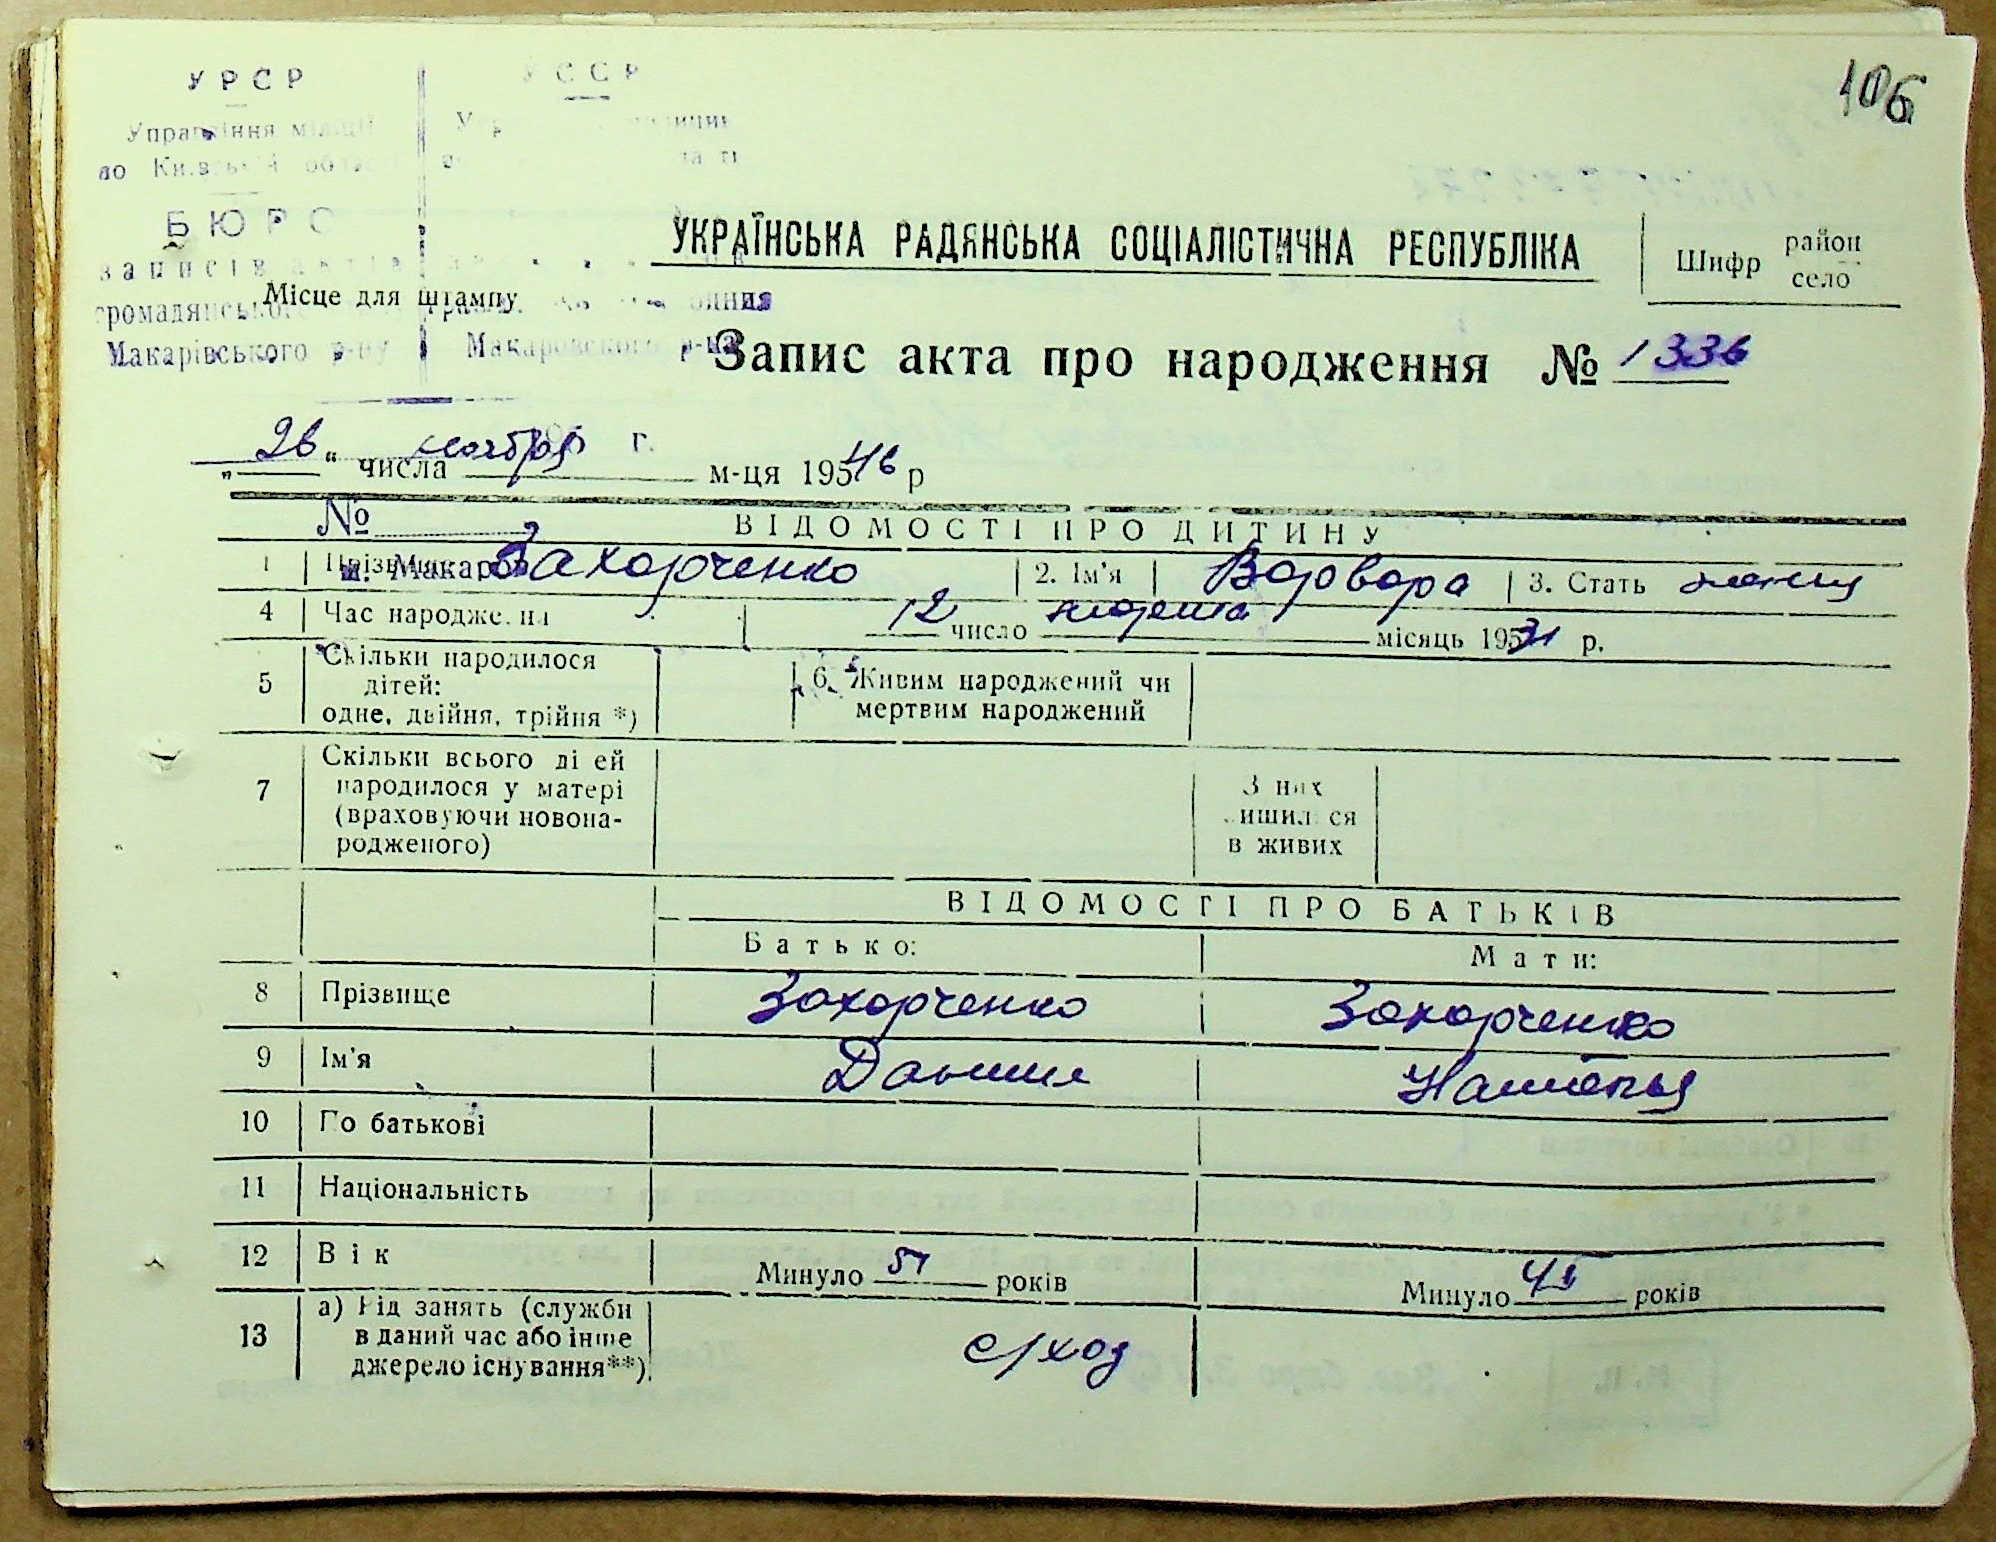 106
УРСР
УССР
Управління міліції
по Київській області
БЮРО
записів актів
громадянського
Макарівського р-ну
Макаровского р-на
Місце для штампу
УКРАЇНСЬКА РАДЯНСЬКА СОЦІАЛІСТИЧНА РЕСПУБЛІКА
Шифр район
село
Запис акта про народження № 1336
„26“ числа ноября м-ця 1946 р
г.
№
м. Макаров
ВІДОМОСТІ ПРО ДИТИНУ
1 Прізвище Захарченко 2. Ім'я Варвара 3. Стать
4 Час народження 12 число марта місяць 1931 р.
5 Скільки народилося дітей: одне, двійня, трійня *)
6. Живим народжений чи мертвим народжений
7 Скільки всього дітей народилося у матері (враховуючи новонародженого)
З них лишилося в живих
ВІДОМОСТІ ПРО БАТЬКІВ
Батько: Мати:
8 Прізвище Захарченко Захарченко
9 Ім'я Даниил
10 По батькові
11 Національність
12 Вік Минуло 51 років Минуло років
13 а) Рід занять (служби в даний час або інше джерело існування**)